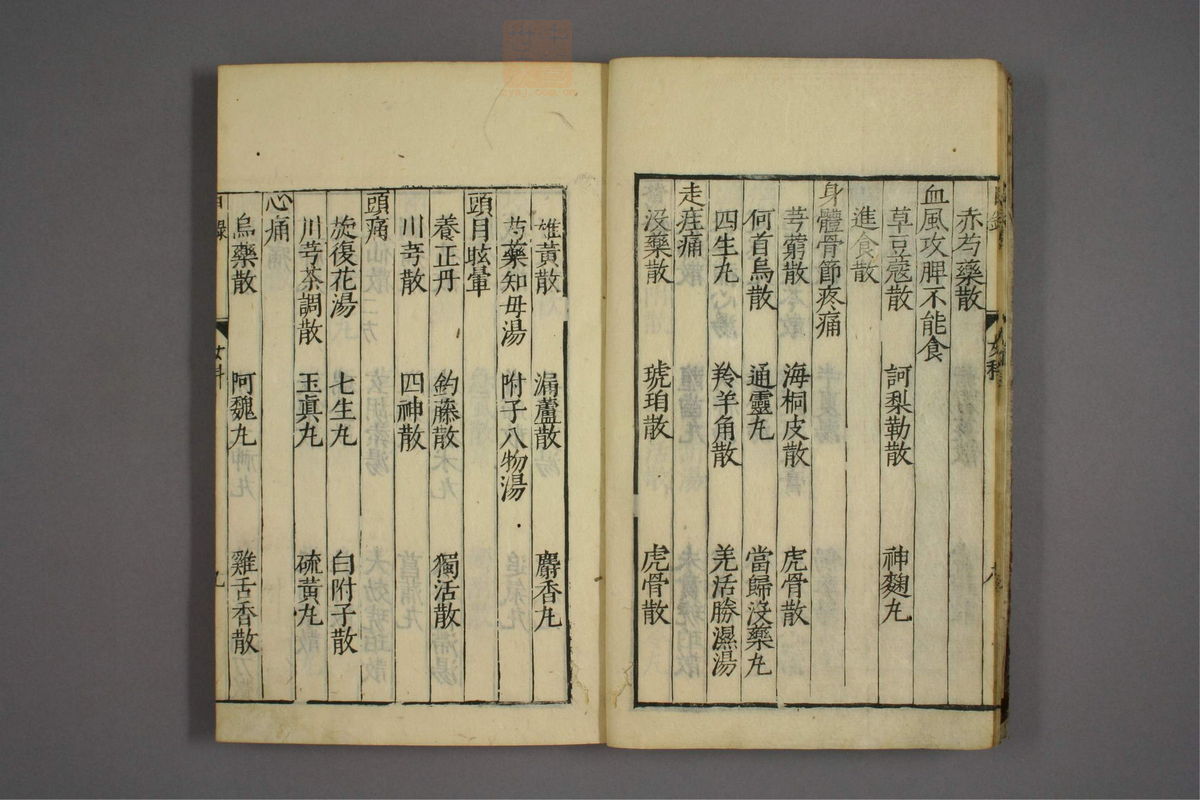 赤芍藥散
血風攻脾不能食
草豆蔻散 訶梨勒散 神麴丸
進食散
身體骨節疼痛
芎藭散 海桐皮散 虎骨散
何首烏散 通靈丸 當歸沒藥丸
四生丸 羚羊角散 羌活勝濕湯
走疰痛
沒藥散 琥珀散 虎骨散
雄黃散 漏蘆散 麝香丸
芍藥知母湯 附子八物湯
頭目眩暈
養正丹 鈎藤散 獨活散
川芎散 四神散
頭痛
旋復花湯 七生丸 白附子散
川芎茶調散 玉眞丸 硫黃丸
心痛
烏藥散 阿魏丸 雞舌香散
目錄 女科 九